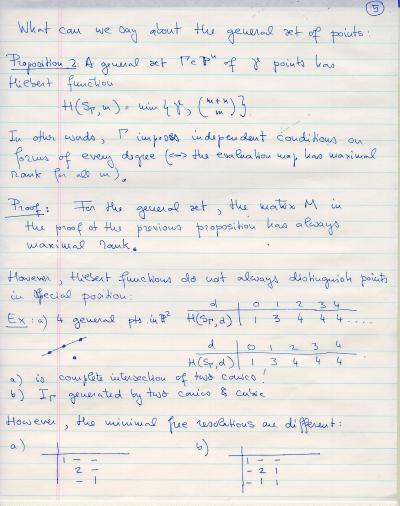 5
What can we say about the general set of points:
Proposition 2: A general set Γ⊂ℙⁿ of γ points has
Hilbert function
H(S_Γ, m) = min{γ, (m+n m)}
In other words, Γ imposes independent conditions on
forms of every degree (↔ the evaluation map has maximal
rank for all m).
Proof: For the general set, the matrix M in
the proof of the previous proposition has always
maximal rank.
However, Hilbert functions do not always distinguish points
in special position:
Ex: a) 4 general pts in ℙ² d 0 1 2 3 4
H(S_Γ,d) 1 3 4 4 4 ....
d 0 1 2 3 4
H(S_Γ,d) 1 3 4 4 4
a) is complete intersection of two conics!
b) I_Γ generated by two conics & cubic
However, the minimal free resolutions are different:
a) b)
1 – – 1 – –
2 – – 2 1
– 1 – 1 1